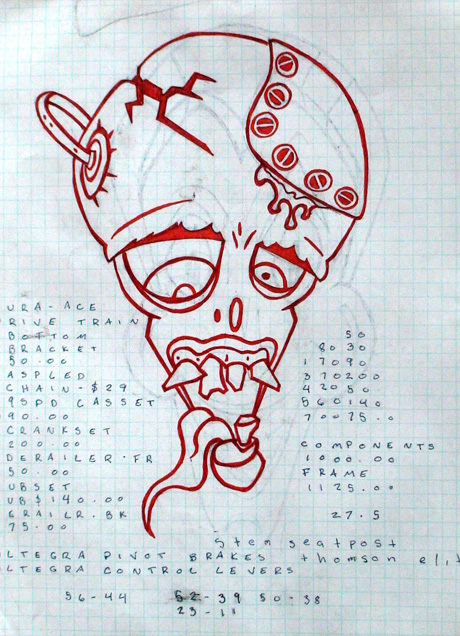 URA-ACE
RIVE TRAIN
BOTTOM
BRACKET
50.00
ASPLED
CHAIN-$29
9SPD CASSET
90.00
CRANKSET
200.00
DERAILER.FR
50.00
UBSET
UB$140.00
ERAILR.BK
75.00
50
80 30
17090
370200
42050
560140
70075.0
COMPONENTS
1000.00
FRAME
1125.00
27.5
Stem seatpost
LTEGRA PIVOT BRAKES thomson elit
LTEGRA CONTROL LEVERS
56-44 52-39 50-38
23-11